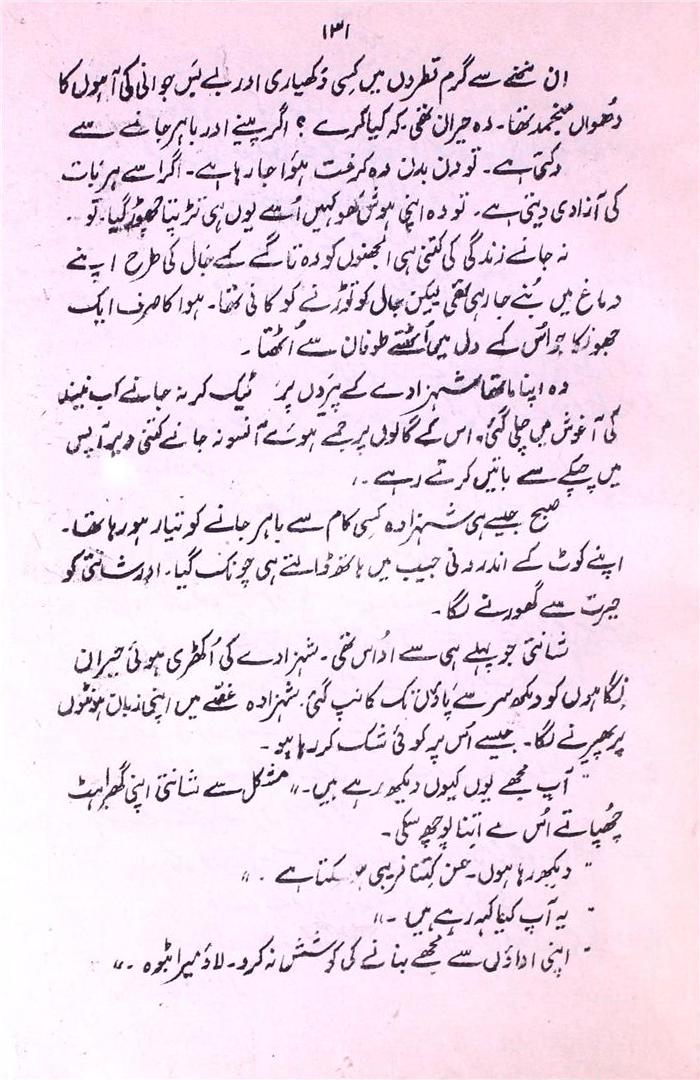 ۱۳۱
ان ننھے سے گرم قطروں میں کسی دکھیاری اور بے بس جوانی کی آہوں کا
دھواں منجمد تھا۔ وہ حیران تھی کہ کیا کرے؟ اگر پینے اور باہر جانے سے
روکتی ہے۔ تو دن بدن وہ کرخت ہوا جا رہا ہے۔ اگر اسے ہر بات
کی آزادی دیتی ہے۔ تو وہ اپنی ہوش کھو کہیں اُسے یوں ہی تڑپتا چھوڑ گیا۔ تو
نہ جانے زندگی کی کتنی ہی الجھنوں کو وہ تاگے کے جال کی طرح اپنے
دماغ میں بُنے جا رہی تھی لیکن جال کو توڑنے کو کافی تھا۔ ہوا کا صرف ایک
جھونکا جو اُس کے دل میں اُٹھتے طوفان سے اُٹھتا۔
وہ اپنا ماتھا شہزادے کے پیروں پر ٹیک کر نہ جانے کب نیند
کی آغوش میں چلی گئی، اس کے گالوں پر جمے ہوئے آنسو نہ جانے کتنی دیر آپس
میں چپکے سے باتیں کرتے رہے۔
صبح جیسے ہی شہزادہ کسی کام سے باہر جانے کو تیار ہو رہا تھا۔
اپنے کوٹ کے اندرونی جیب میں ہاتھ ڈالتے ہی چونک گیا۔ اور شانتی کو
حیرت سے گھورنے لگا۔
شانتی جو پہلے ہی سے اداس تھی۔ شہزادے کی اُکھڑی ہوئی حیران
نگاہوں کو دیکھ سر سے پاؤں تک کانپ گئی۔ شہزادہ غصّے میں اپنی زبان ہونٹوں
پر پھیرنے لگا۔ جیسے اُس پر کوئی شک کر رہا ہو۔
"آپ مجھے یوں کیوں دیکھ رہے ہیں۔" مشکل سے شانتی اپنی گھبراہٹ
چھپاتے اُس سے اتنا پوچھ سکی۔
"دیکھ رہا ہوں۔ کتنا فریبی ہو سکتا ہے۔"
"یہ آپ کیا کہہ رہے ہیں۔"
"اپنی اداؤں سے مجھے بنانے کی کوشش نہ کرو۔ لاؤ میرا بٹوہ۔"